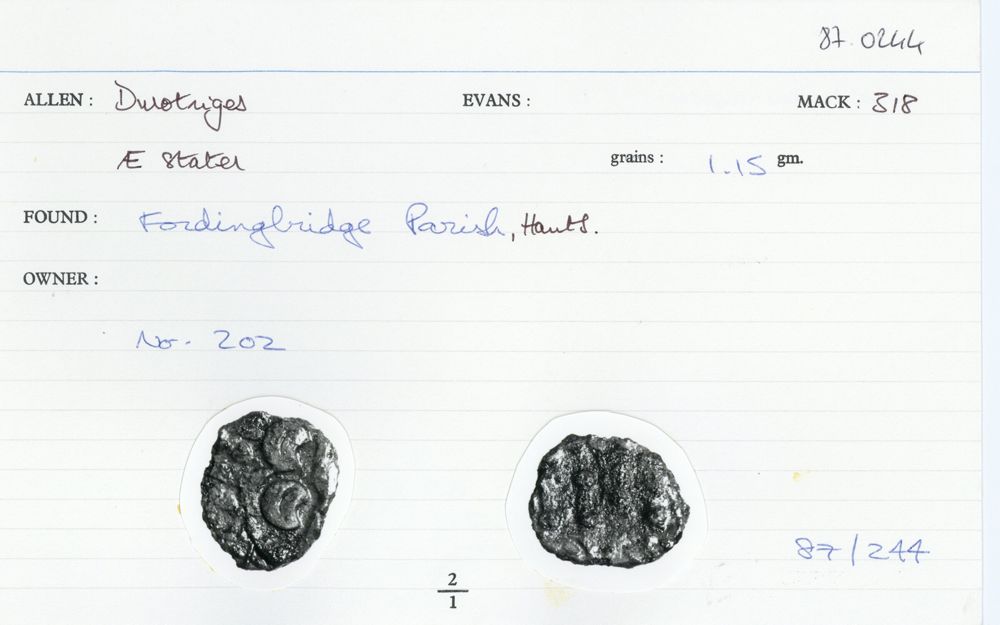 87.0244
ALLEN : Durotriges EVANS : MACK : 318
Æ Stater grains : 1.15 gm.
FOUND : Fordingbridge Parish, Hants.
OWNER :
No. 202
87/244
2
1